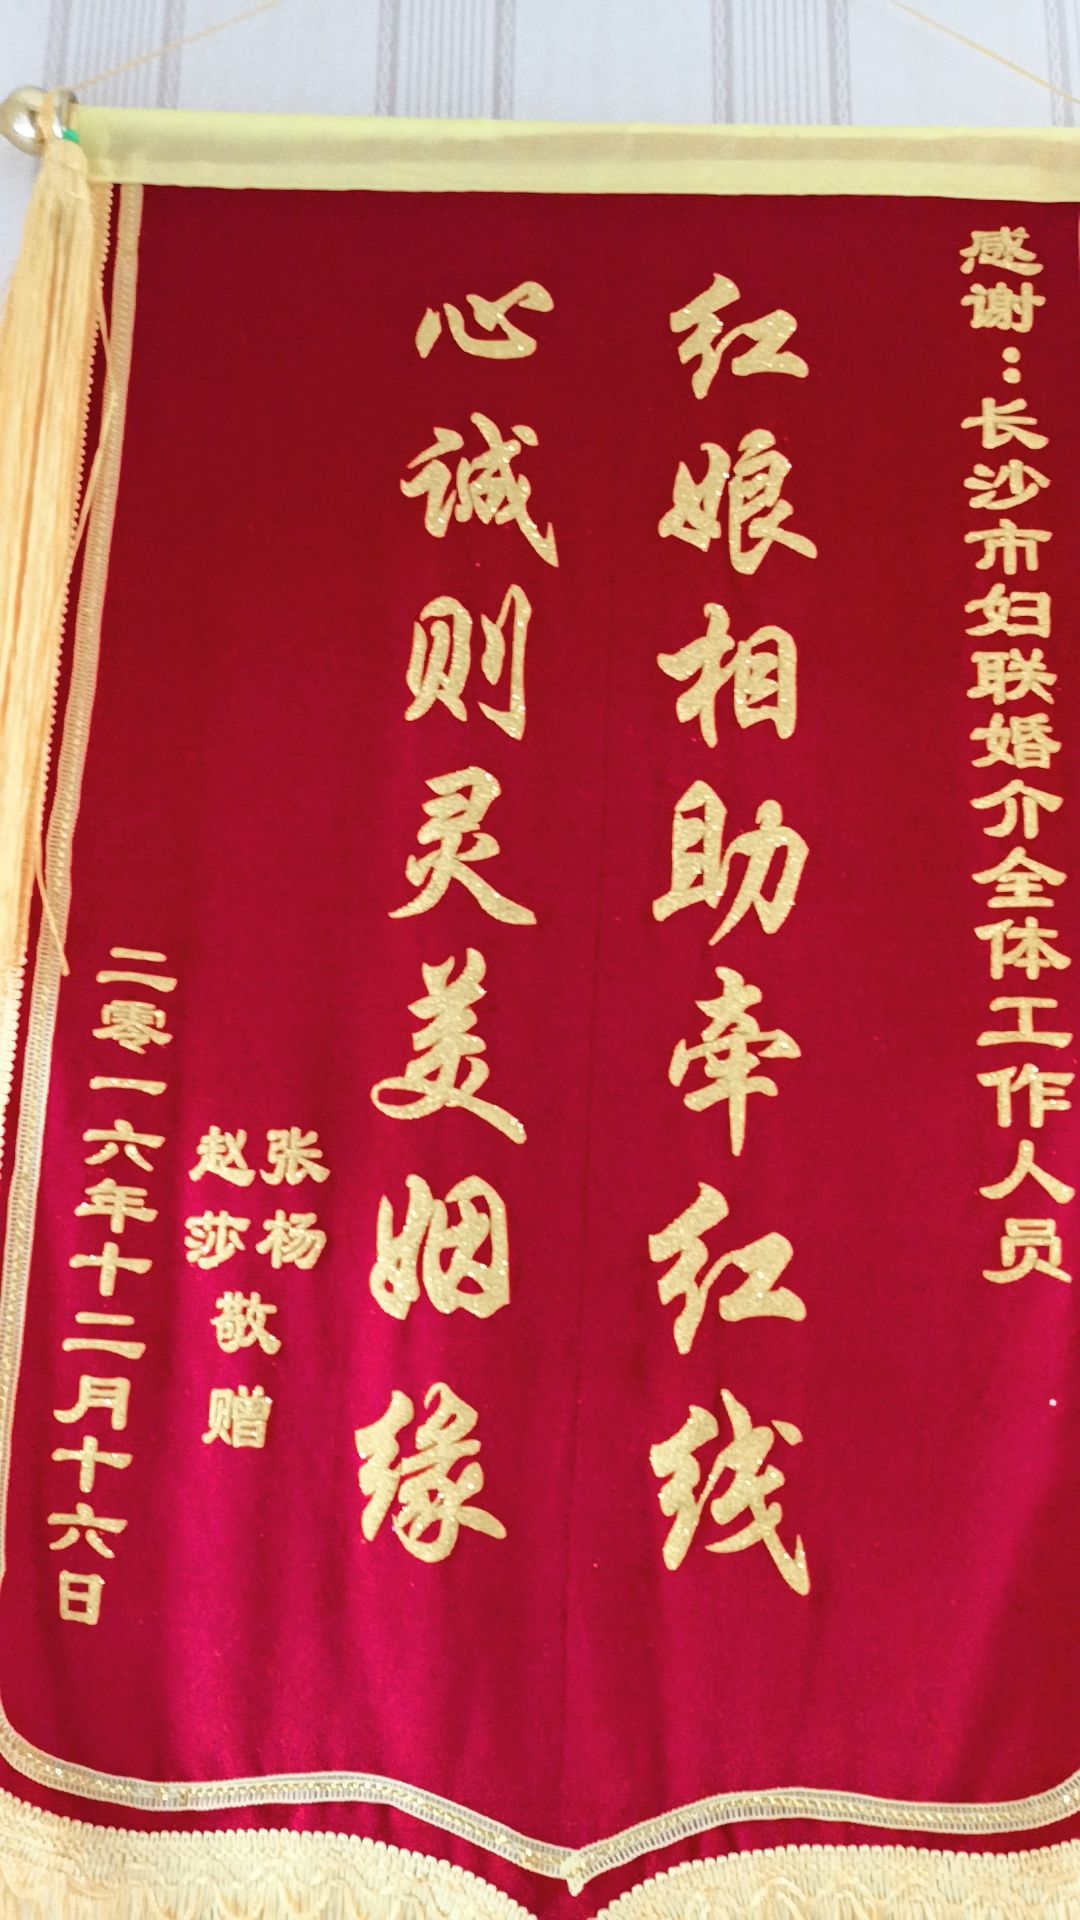 感谢：长沙市妇联婚介全体工作人员
红娘相助牵红线
心诚则灵美姻缘
张杨
赵莎
敬赠
二零一六年十二月十六日